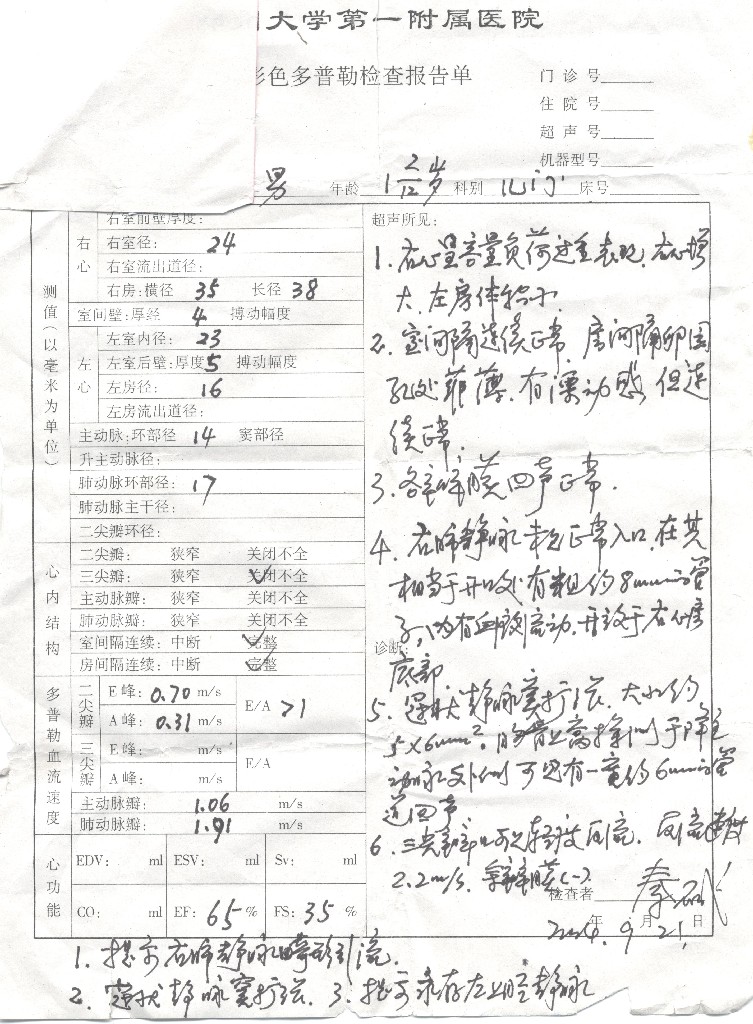 大学第一附属医院
彩色多普勒检查报告单
门诊号
住院号
超声号
机器型号
男 年龄 1 2/12岁 科别 儿门 床号
测值(以毫米为单位)
右心
右室前壁厚度:
右室径: 24
右室流出道径:
右房:横径 35 长径 38
室间壁:厚经 4 搏动幅度
左心
左室内径: 23
左室后壁:厚度 5 搏动幅度
左房径: 16
左房流出道径:
主动脉:环部径 14 窦部径
升主动脉径:
肺动脉环部径: 17
肺动脉主干径:
二尖瓣环径:
心内结构
二尖瓣: 狭窄 关闭不全
三尖瓣: 狭窄 关闭不全
主动脉瓣: 狭窄 关闭不全
肺动脉瓣: 狭窄 关闭不全
室间隔连续: 中断 完整
房间隔连续: 中断 完整
多普勒血流速度
二尖瓣
E峰: 0.70 m/s
A峰: 0.31 m/s
E/A >1
三尖瓣
E峰: m/s
A峰: m/s
E/A
主动脉瓣: 1.06 m/s
肺动脉瓣: 1.91 m/s
心功能
EDV: ml ESV: ml Sv: ml
CO: ml EF: 65% FS: 35%
超声所见:
1. 右心呈容量负荷过重表现,右心增
大,左房体积小
2. 室间隔连续正常,房间隔卵圆
孔处菲薄,有漂动感,但连
续正常.
3. 各瓣膜回声正常.
4. 右肺静脉未见正常入口,在其
相当于开口处有粗约8mm的管
子,内有血液流动,开口于右心房
底部
诊断:
5. 冠状静脉窦扩张,大小约
5×6mm²,胸骨上窝探测于降主
动脉外侧可见有一宽约6mm管
道回声
6. 三尖瓣口可见轻度反流,反流速度
2.2m/s,
检查者
年 9月21日
1. 提示右肺静脉畸形引流.
2. 冠状静脉窦扩张. 3. 提示永存左上腔静脉